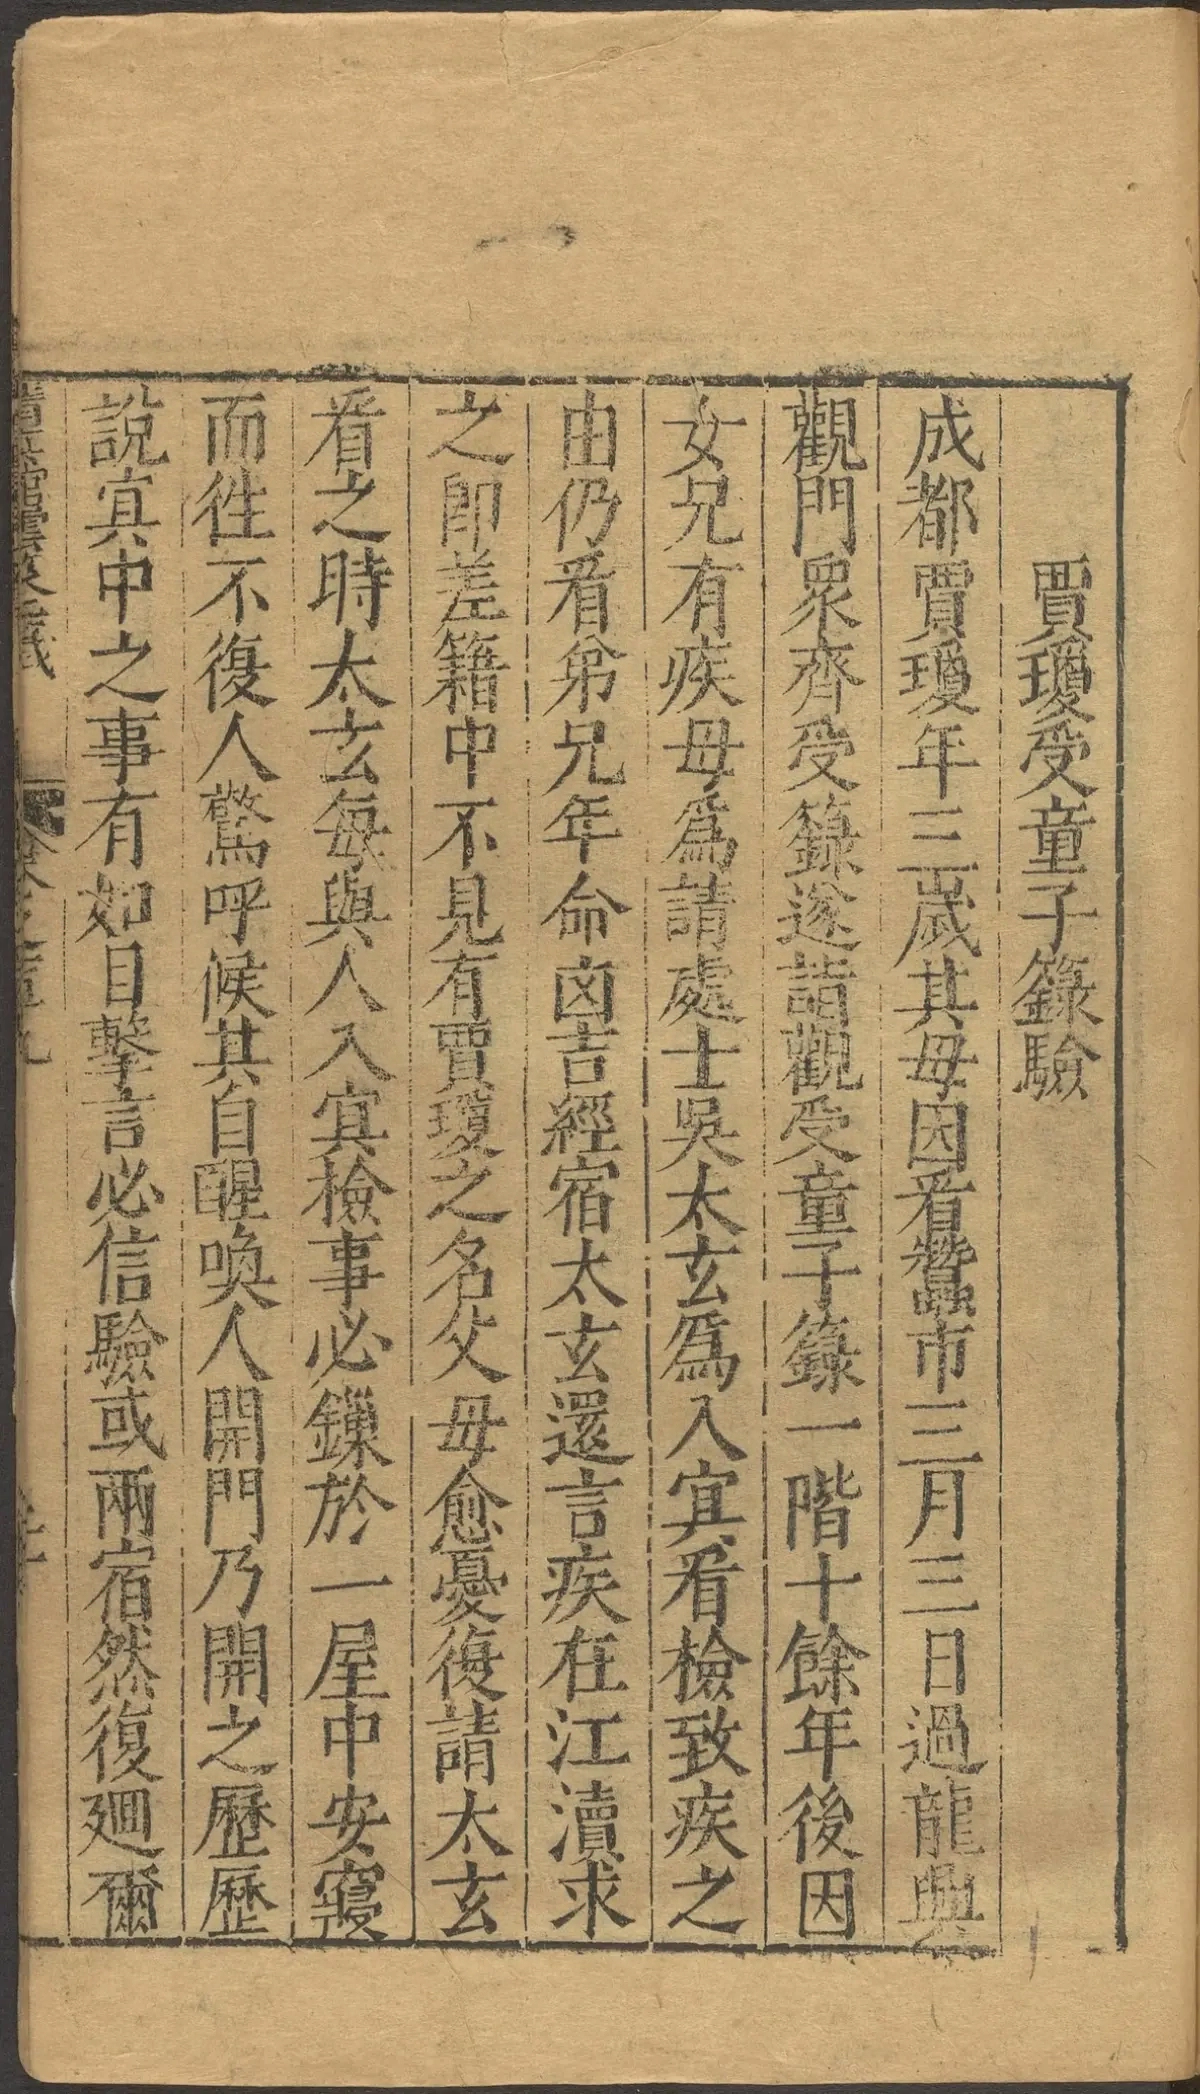 賈瓊受童子籙驗
成都賈瓊年三歲其母因看蠶市三月三日過龍興
觀門衆齊受籙遂詣觀受童子籙一階十餘年後因
女兄有疾母爲請處士吳太玄爲入㝠看檢致疾之
由仍看弟兄年命凶吉經宿太玄還言疾在江瀆求
之即差籍中不見有賈瓊之名父母愈憂復請太玄
看之時太玄每與人入㝠檢事必鏁於一屋中安寢
而徃不復人驚呼候其自醒喚人開門乃開之歷歷
說㝠中之事有如目擊言必信驗或兩宿然復廻爾